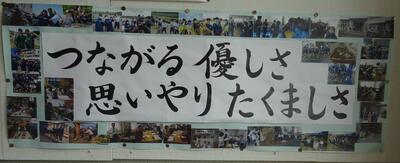 つながる 優しさ
思いやり たくましさ